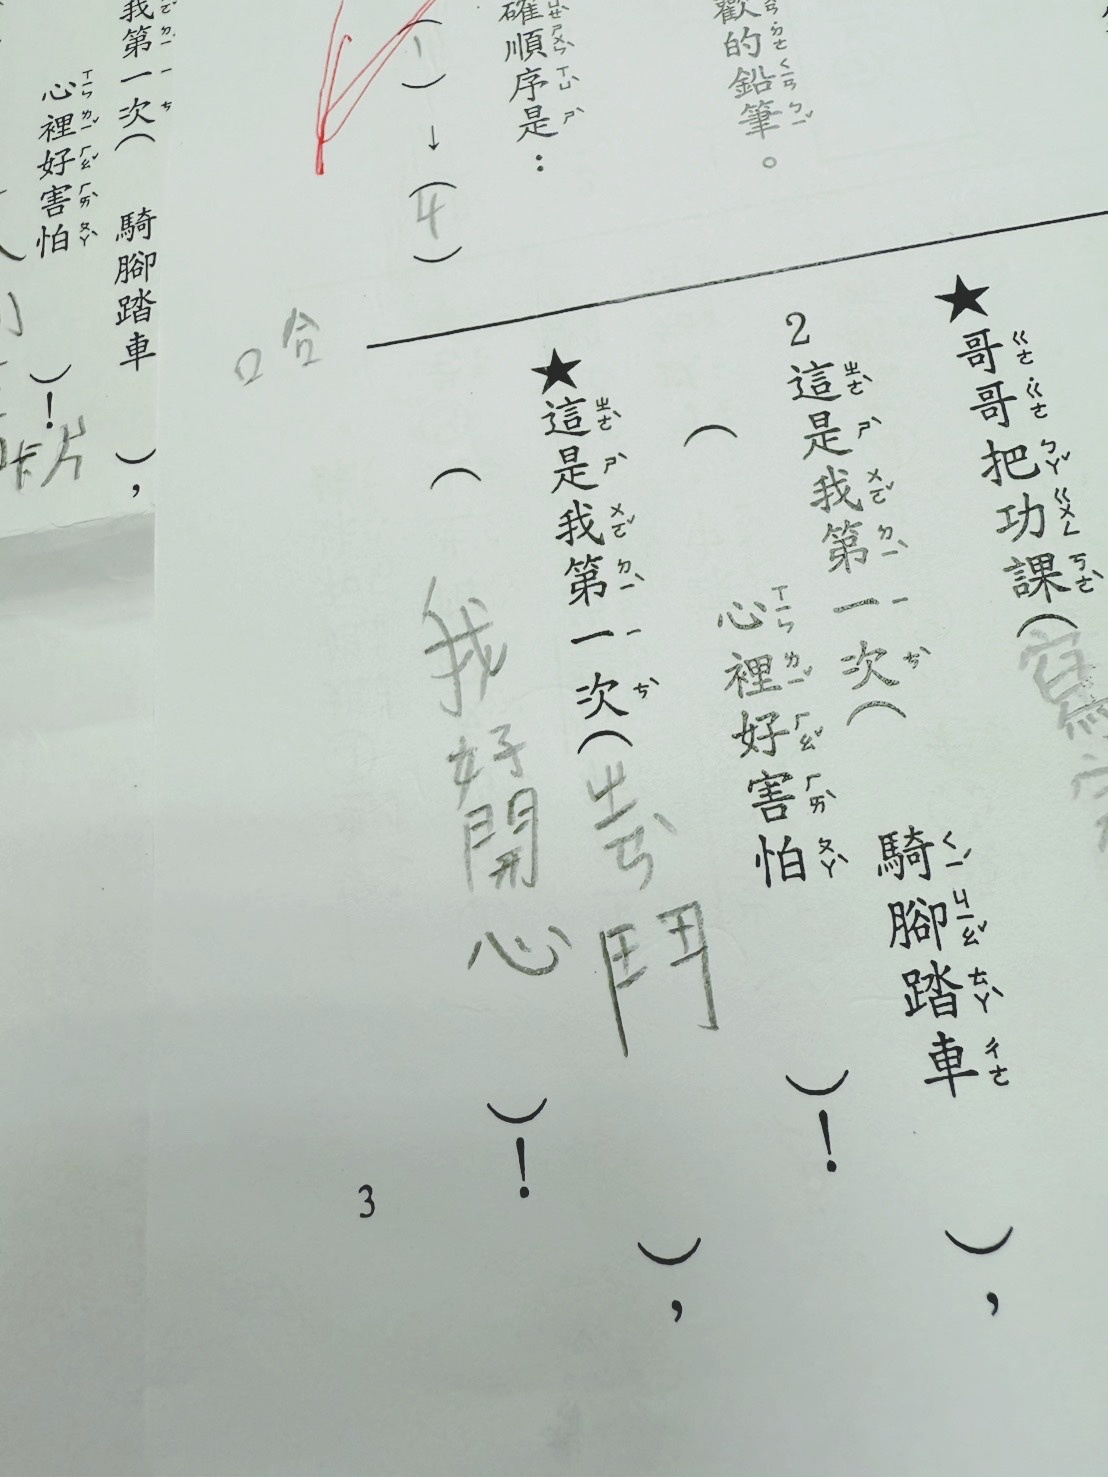 歡的鉛筆。
確順序是：
(1)→(4)
★哥哥把功課(寫完
)，
2這是我第一次(騎腳踏車)，
(心裡好害怕)！
★這是我第一次(ㄓㄢˋ鬥)，
(我好開心)！
口合
3
我第一次(騎腳踏車)，
心裡好害怕)！
卡片